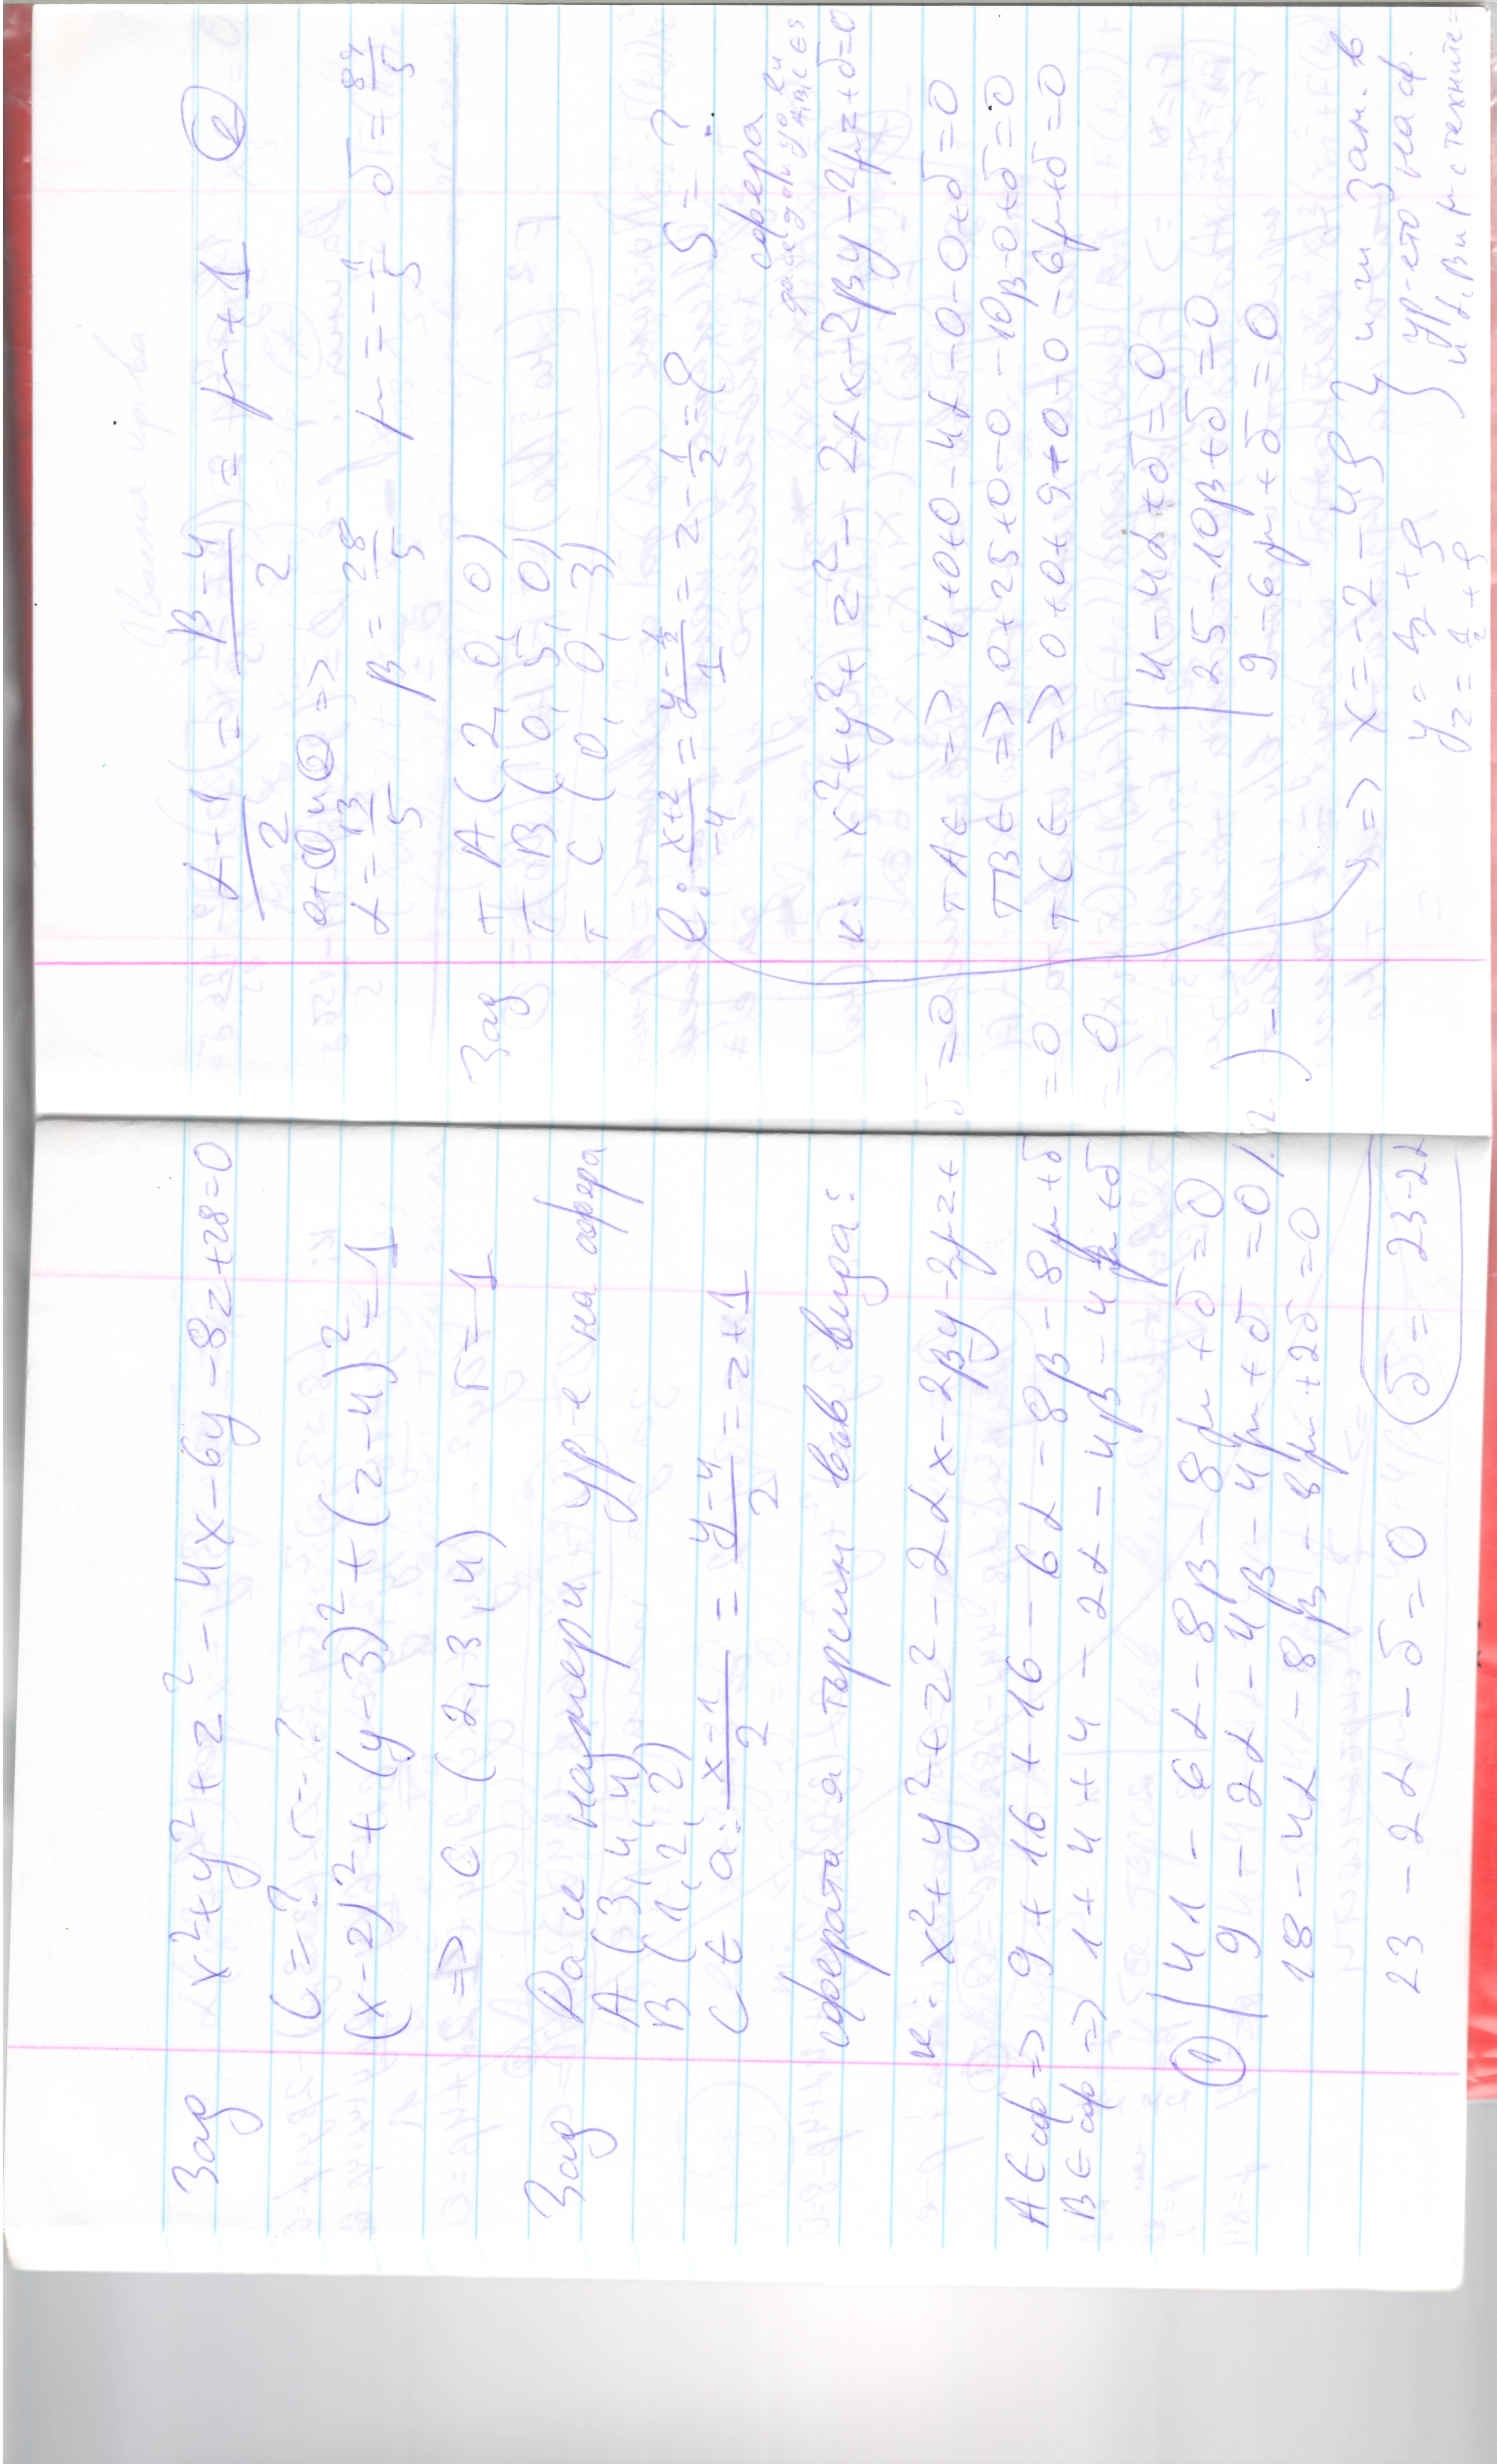 Зад x²+y²+z²-4x-6y-8z+28=0
C=? r=?
(x-2)²+(y-3)²+(z-4)²=1
=> C (2,3,4) r=1
Зад Да се намери ур-е на сфера
A (3,4,4)
B (1,2,2)
C ∈ a: (x-1)/2 = (y-4)/2 = z+1
сферата я търсим във вида:
к: x²+y²+z²-2αx-2βy-2μz+δ=0
A∈сф => 9+16+16-6α-8β-8μ+δ=0
B∈сф => 1+4+4-2α-4β-4μ+δ=0
① | 41-6α-8β-8μ+δ=0
| 9-2α-4β-4μ+δ=0 /.2 ) -
18-4α-8β-8μ+2δ=0
23-2α-δ=0 δ=23-2α
(α-1)/2 = (β-4)/2 = μ+1 ②
от ① и ② =>
α=13/5 β=28/5 μ=-1/5 δ=89/5
Зад т A (2, 0, 0)
т B (0, 5, 0)
т C (0, 0, 3)
l: (x+2)/-4 = (y-1/2)/1 = z-1/2 = ρ S=?
сфера
к: x²+y²+z²-2αx-2βy-2μz+δ=0
т A∈ => 4+0+0-4α-0-0+δ=0
т B∈ => 0+25+0-0-10β-0+δ=0
т C∈ => 0+0+9-0-0-6μ+δ=0
| 4-4α+δ=0
| 25-10β+δ=0
| 9-6μ+δ=0
=> x=-2-4ρ } и ги зам. в
y=½+ρ } ур-ето на сф.
z=½+ρ и α, β и μ с техните